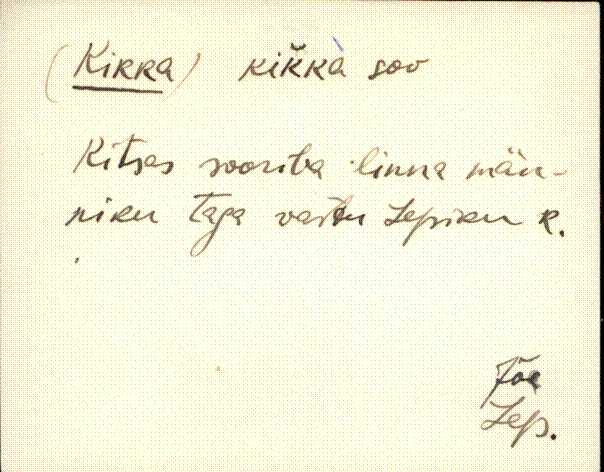 (Kikka) kikkà soo
Kitsas sooriba linna män-
niku taga vastu Lepiku k.
Jõe
Lep.